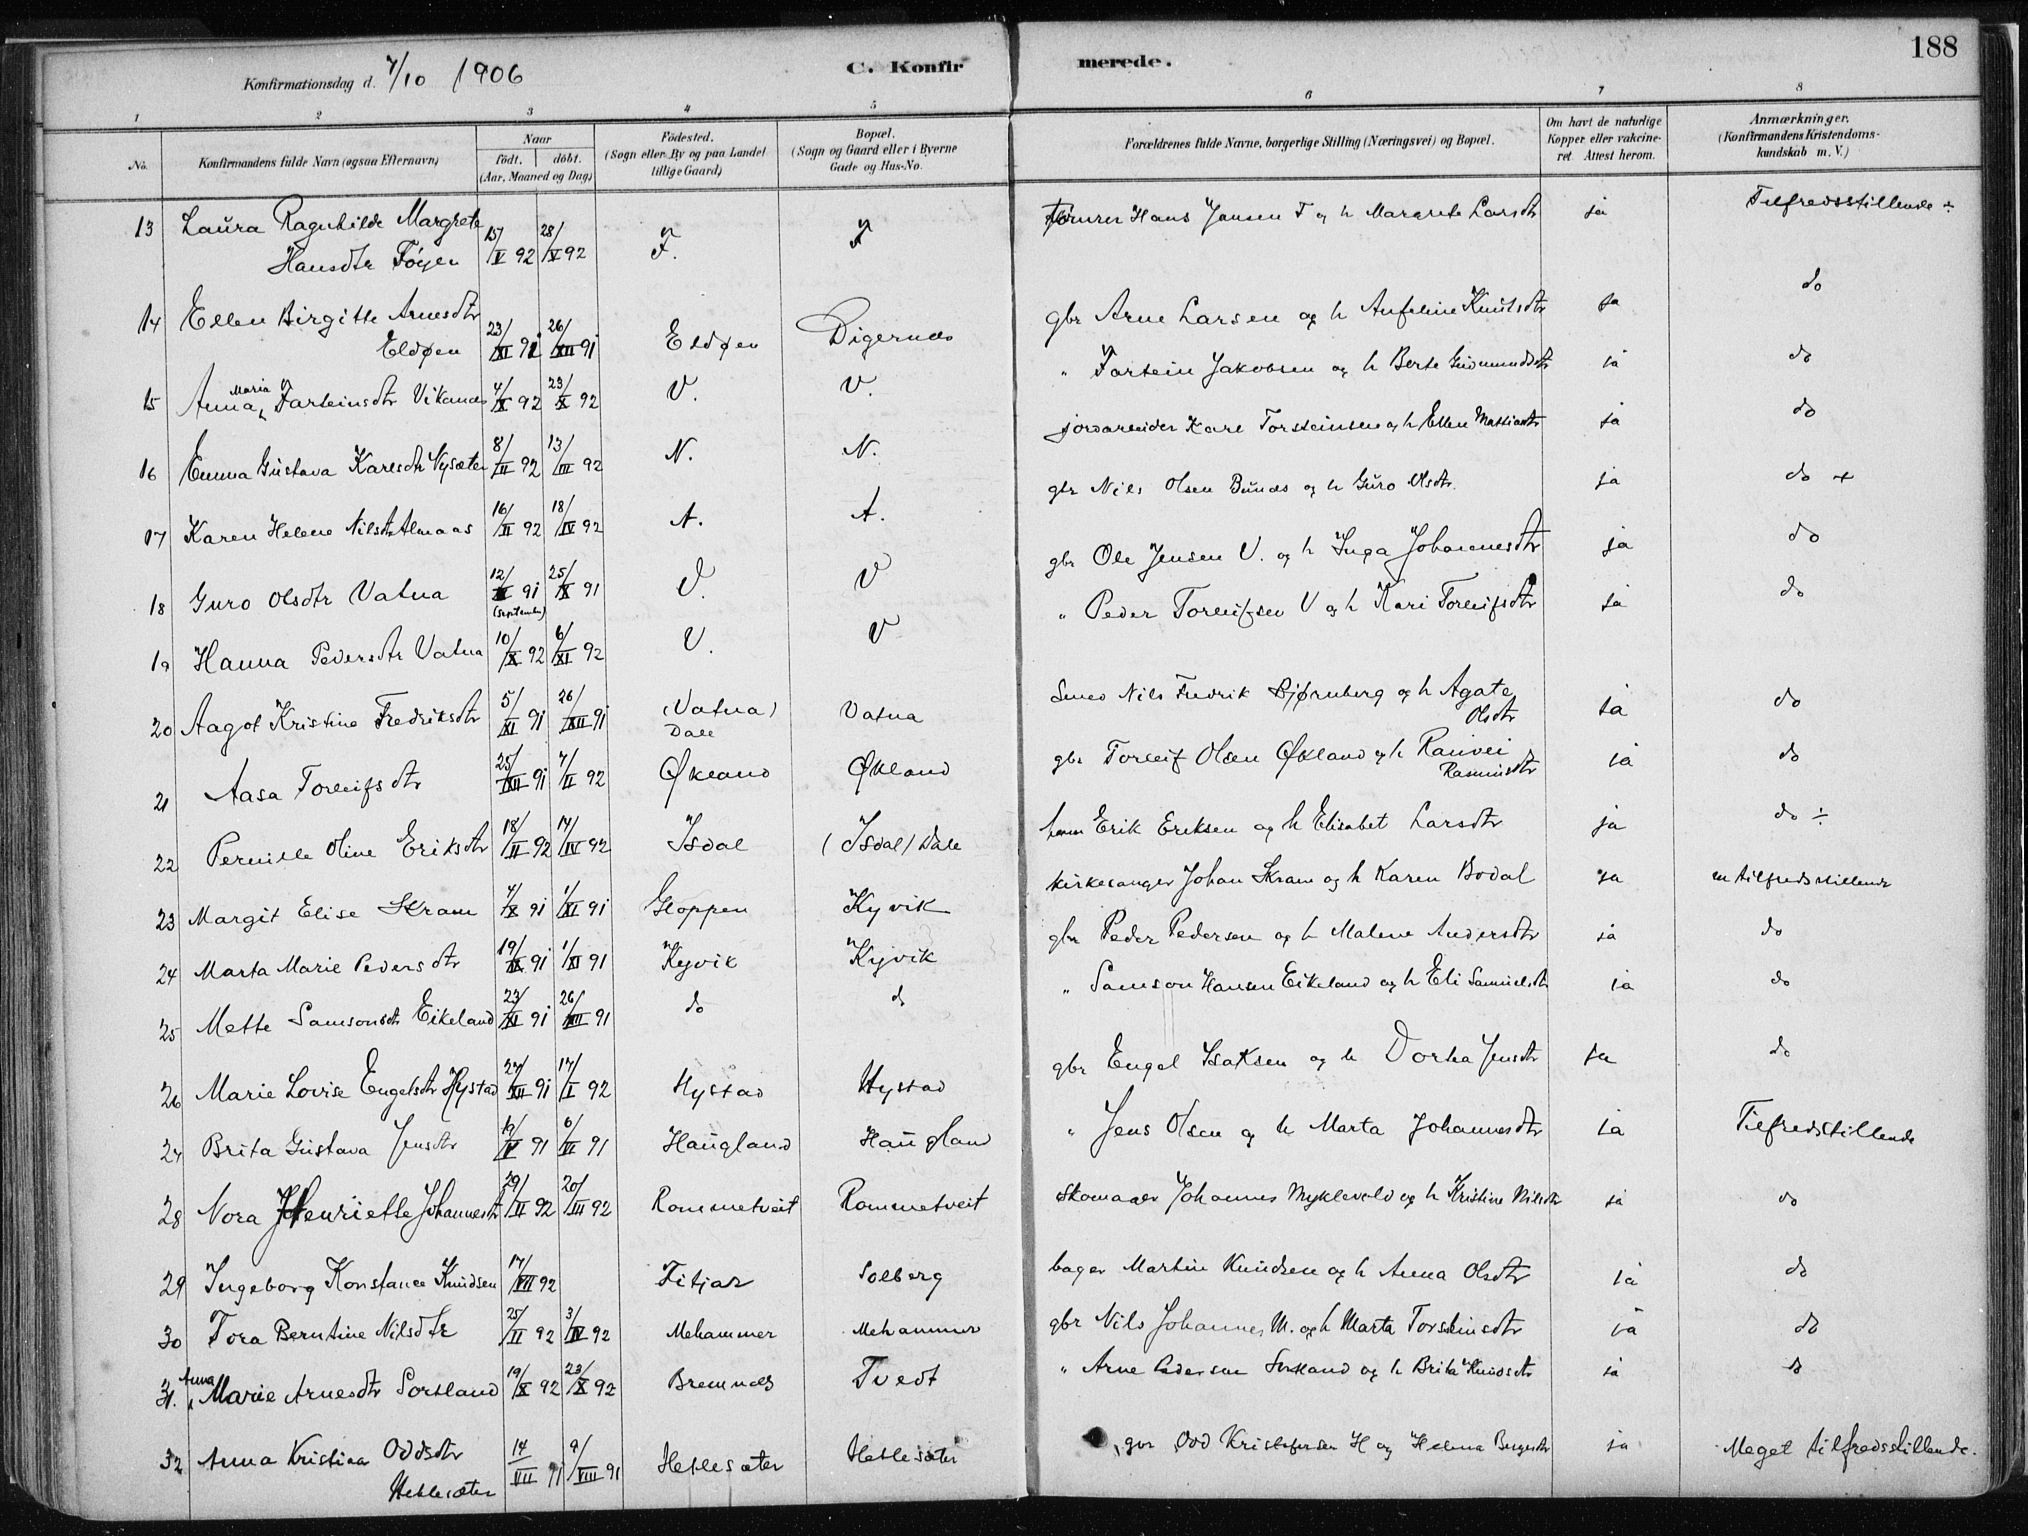 188
Konfirmationsdag d. 7/10 1906 C. Konfirmerede.
1 2 3 4 5 6 7 8
No. Konfirmandens fulde Navn (ogsaa Efternavn) Naar født. døbt. (Aar, Maaned og Dag) Fødested. (Sogn eller By og paa Landet tillige Gaard) Bopæl. (Sogn og Gaard eller i Byerne Gade og Hus-No. Forældrenes fulde Navne, borgerlige Stilling (Næringsvei) og Bopæl. Om havt de naturlige Kopper eller vakcineret Attest herom. Anmærkninger. (Konfirmandens Kristendomskundskab m. V.)
13 Laura Ragnhilde Margrete Hansdtr Føyen 15/V 92 28/V 92 F. F Hans Jensen F og h Margrete Larsdtr ja Tilfredsstillende ÷
14 Ellen Birgitte Arnesdtr Eldøen 23/XI 91 26/XII 91 Eldøen Digernes gbr Arne Larsen og h Knutsdtr ja do
15 Anna Maria Tarleinsdtr Vikanes 4/X 92 23/X 92 V. V. " Jakobsen og h Berte Gudmundsdtr ja do
16 Emma Gustava Karlsdtr Nysæter 8/II 92 13/III 92 N. N. jordarbeider Karl Torsteinsen og h Ellen Mattiasdtr ja do
17 Karen Helene Nilsdtr Almaas 16/II 92 18/IV 92 A. A. gbr Nils Olsen og h Guro Olsdtr ja do +
18 Guro Olsdtr Vatna 12/IX 91 (September) 25/X 91 V. V gbr Ole Jensen V. og h Inga Johannesdtr ja do
19 Hanna Pedersdtr Vatna 10/X 92 6/XI 92 V. V " Peder Torleifsen V og h Kari Torleifsdtr ja do
20 Aagot Kristine Fredriksdtr 5/XI 91 26/XII 91 (Vatna) Dale Vatna Smed Nils Fredrik Bjørnberg og h Agate Olsdtr ja do
21 Aasa Torleifsdtr 25/XII 91 7/II 92 Økland Økland gbr Torleif Olsen Økland og h Ranvei Rasmusdtr ja do
22 Pernille Oline Eriksdtr 18/II 92 17/IV 92 Isdal (Isdal) Dale Erik Eriksen og h Elisabet Larsdtr ja do ÷
23 Margit Elise Skram 7/X 91 1/XI 91 Gloppen Kyvik kirkesanger Johan Skram og h Karen Bodal ja m tilfredsstillende
24 Marta Marie Pedersdtr 19/IX 91 1/XI 91 Kyvik Kyvik gbr Peder Pedersen og h Malene Andersdtr ja do
25 Mette Samsonsdtr Eikeland 23/XI 91 26/XII 91 do do " Samson Hansen Eikeland og h Eli Samuelsdtr ja do
26 Marie Lovise Engelsdtr Hystad 27/XII 91 17/I 92 Hystad Hystad gbr Engel Isaksen og h Dorthea Jensdtr ja do
27 Brita Gustava Jensdtr 19/V 91 6/VI 91 Haugland Haugland " Jens Olsen og h Marta Johannesdtr ja Tilfredstillende
28 Nora Henriette Johannesdtr 29/II 92 20/III 92 Rommetveit Rommetveit Skomager Johannes Myklevold og h Kristine Nilsdtr ja do
29 Ingeborg Konstance Knudsen 17/VII 92 Fitjar Solberg bager Martin Knudsen og h Anna Olsdtr ja do
30 Tora Berntine Nilsdtr 25/II 92 3/IV 92 Mehammer Mehammer gbr Nils Johannes M. og h Marta Torsteinsdtr ja do
31. Anna Marie Arnesdtr Sortland 19/X 92 23/X 92 Bremnes Tvedt " Arne Pedersen Sortland og h Brita Knudsdtr ja do
32 Anna Kristina Oddsdtr Hetlesæter 14/VII 91 9/VIII 91 Hetlesæter Hetlesæter gbr Odd Kristofersen H og Helena Bergesdtr ja Meget tilfredsstillende.